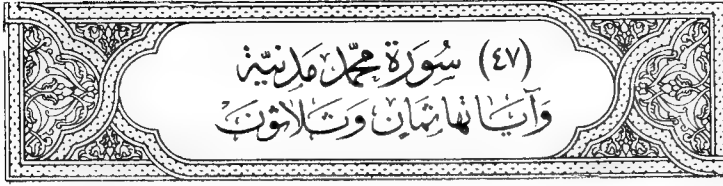 (٤٧) سُورَة مُحَمَّد مَدَنِيَّة
وَآيَاتهَا ثَمَان وَثَلَاثُونَ